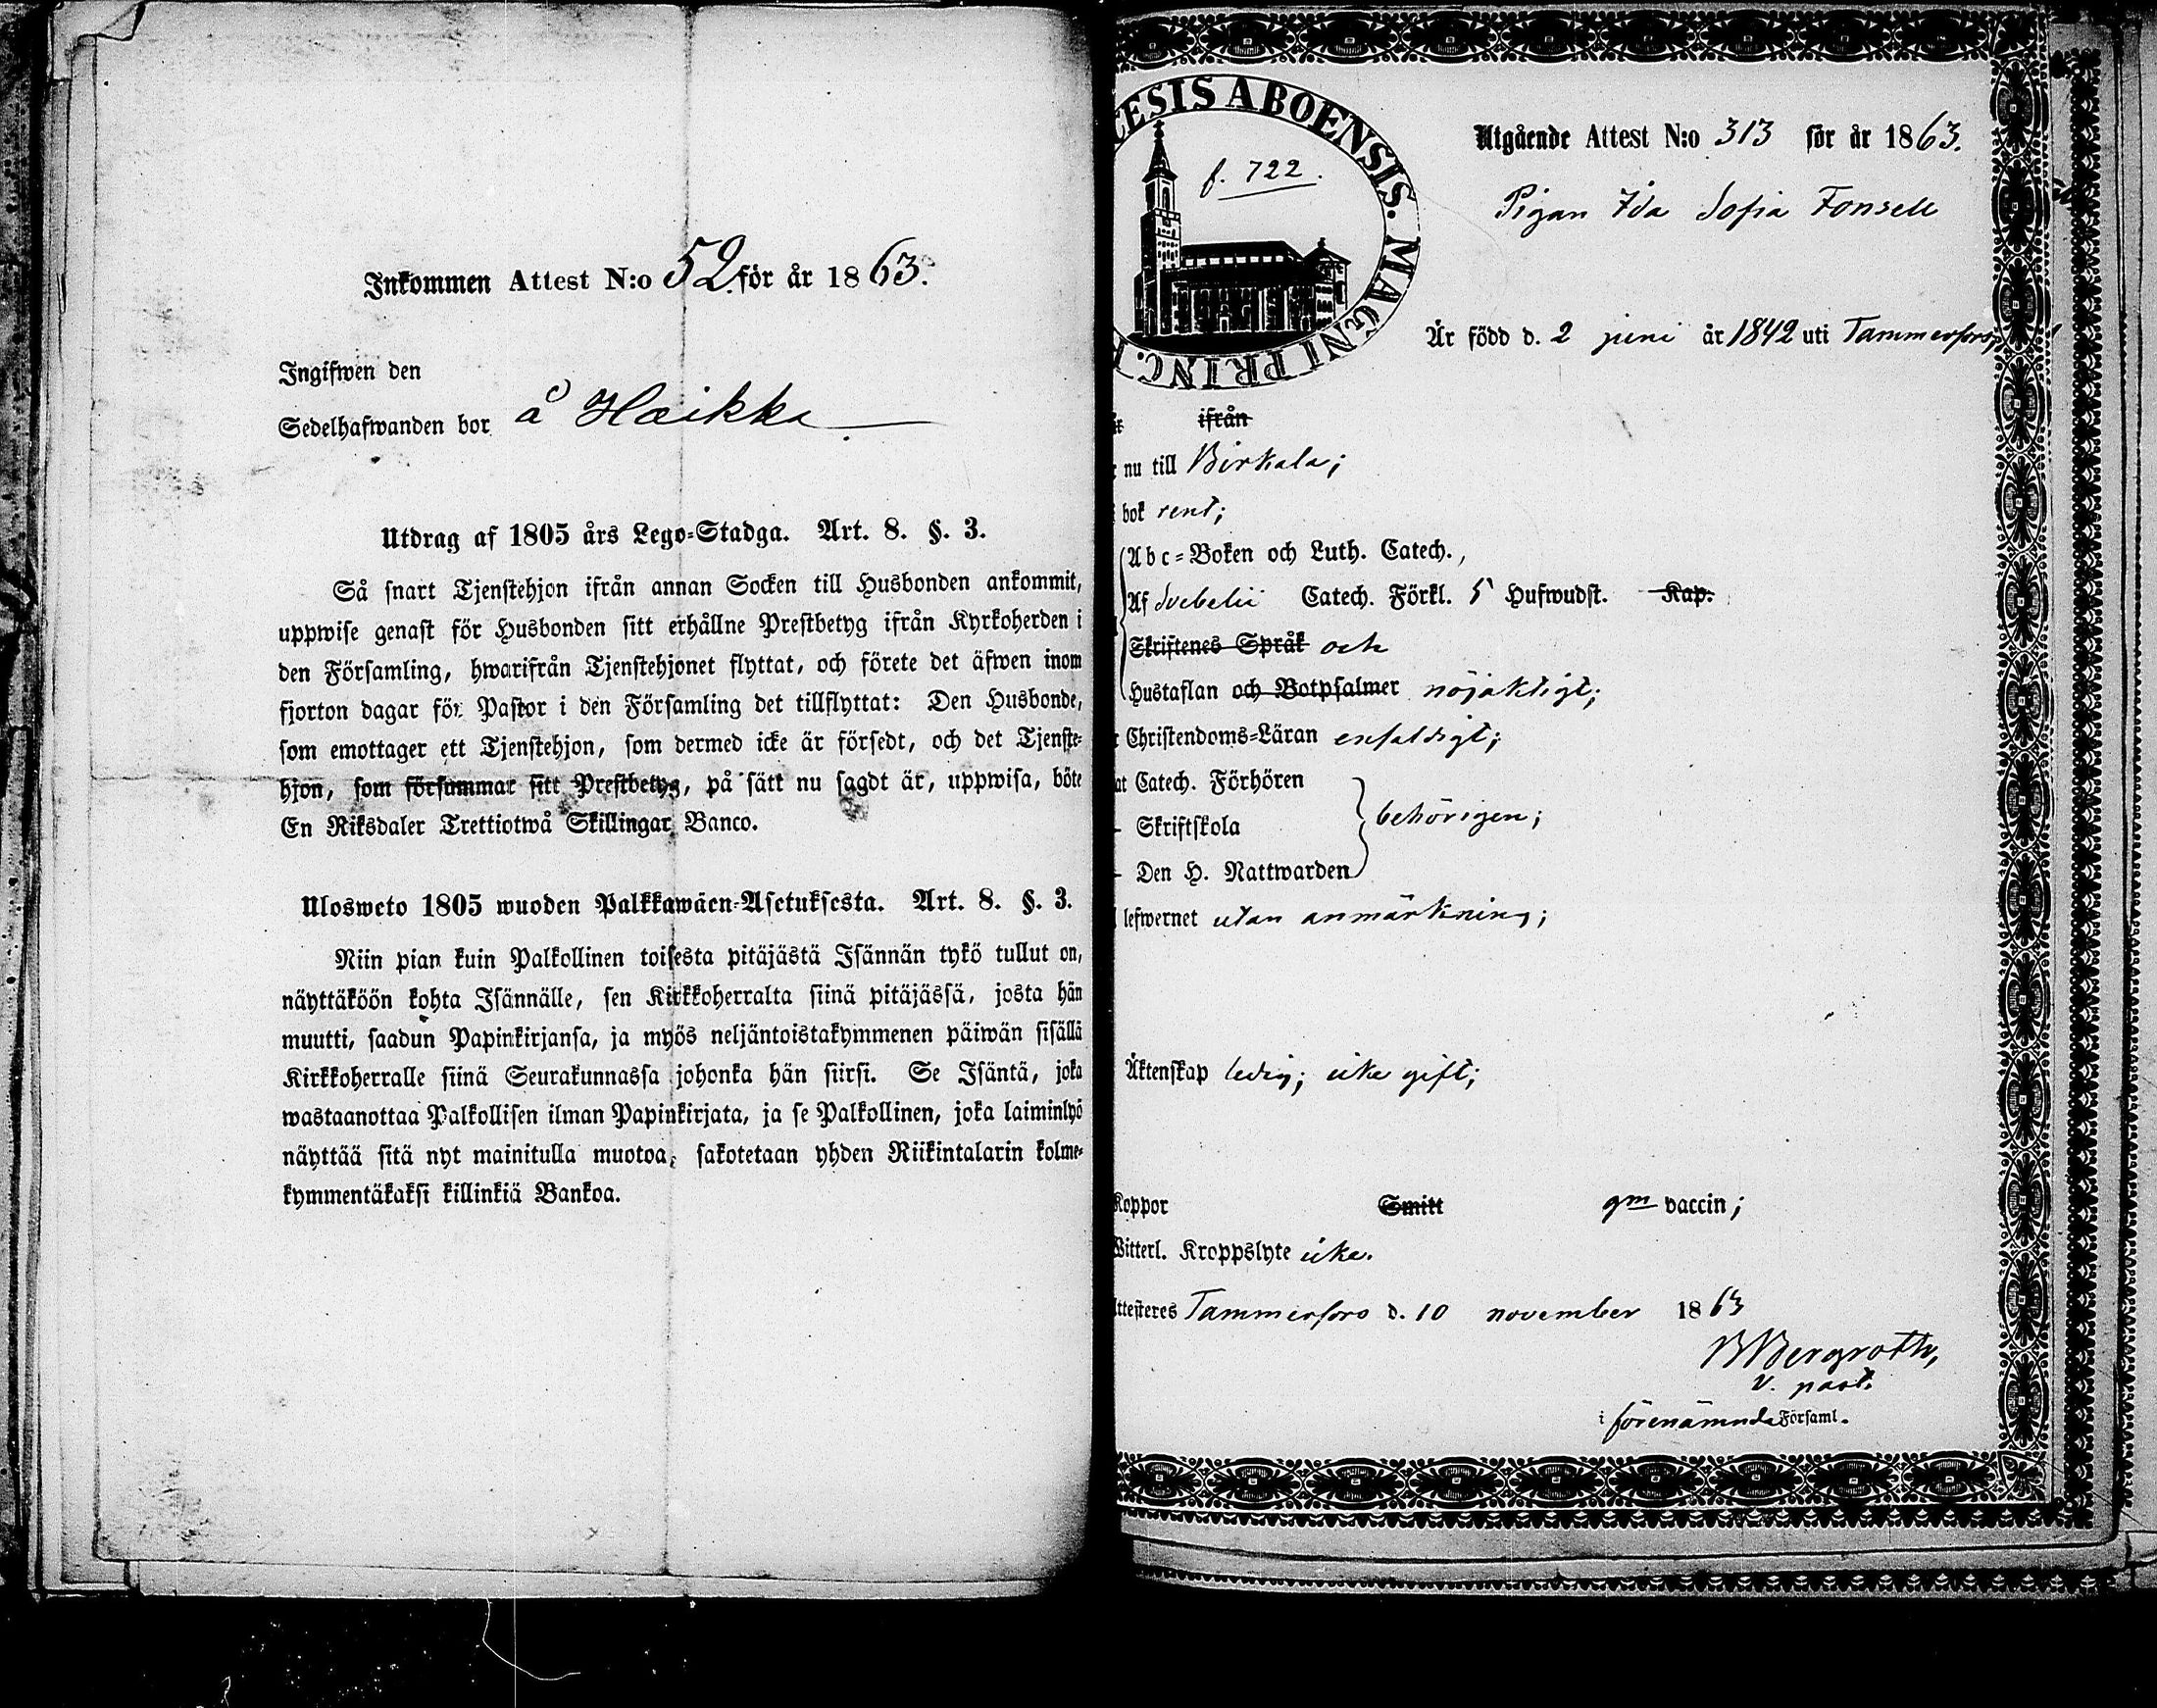 Inkommen Attest N:o 52. för år 1863.
Ingifwen den
Sedelhafwanden bor å Haikka.
Utdrag af 1805 års Lego-Stadga. Art. 8. §. 3.
Så snart Tjenstehjon ifrån annan Socken till Husbonden ankommit,
uppwise genast för Husbonden sitt erhållne Prestbetyg ifrån Kyrkoherden i
den Församling, hwarifrån Tjenstehjonet flyttat, och förete det äfwen inom
fjorton dagar för Pastor i den Församling det tillflyttat: Den Husbonde,
som emottager ett Tjenstehjon, som dermed icke är försedt, och det Tjenste-
hjon, som försummar sitt Prestbetyg, på sätt nu sagdt är, uppwisa, böte
En Riksdaler Trettiotwå Skillingar Banco.
Ulosweto 1805 wuoden Palkkawäen-Asetuksesta. Art. 8. §. 3.
Niin pian kuin Palkollinen toisesta pitäjästä Isännän tykö tullut on,
näyttäköön kohta Isännälle, sen Kirkkoherralta siinä pitäjässä, josta hän
muutti, saadun Papinkirjansa, ja myös neljäntoistakymmenen päiwän sisällä
Kirkkoherralle siinä Seurakunnassa johonka hän siirsi. Se Isäntä, joka
wastaanottaa Palkollisen ilman Papinkirjata, ja se Palkollinen, joka laiminlyö
näyttää sitä nyt mainitulla muotoa, sakotetaan yhden Riikintalarin kolme-
kymmentäkaksi killinkiä Bankoa.
CESIS ABOENSIS. MAGNI PRINC.
f. 722.
Utgående Attest N:o 313 för år 1863.
Pigan Ida Sofia Fonsell
Är född d. 2 juni år 1842 uti Tammerfors;
ifrån
nu till Birkala;
bok rent;
Abc-Boken och Luth. Catech.,
Af Svebelii Catech. Förkl. 5 Hufwudst. Kap.
Skriftenes Språk och
Hustaflan och Botpsalmer nöjaktigt;
Christendoms-Läran enfaldigt;
at Catech. Förhören
- Skriftskola
behörigen;
- Den H. Nattwarden
lefwernet utan anmärkning;
Äktenskap ledig; icke gift;
Koppor Smitt gm vaccin;
Witterl. Kroppslyte icke.
Attesteres Tammerfors d. 10 november 1863
B Bergroth,
v. past.
i förenämnda Församl.